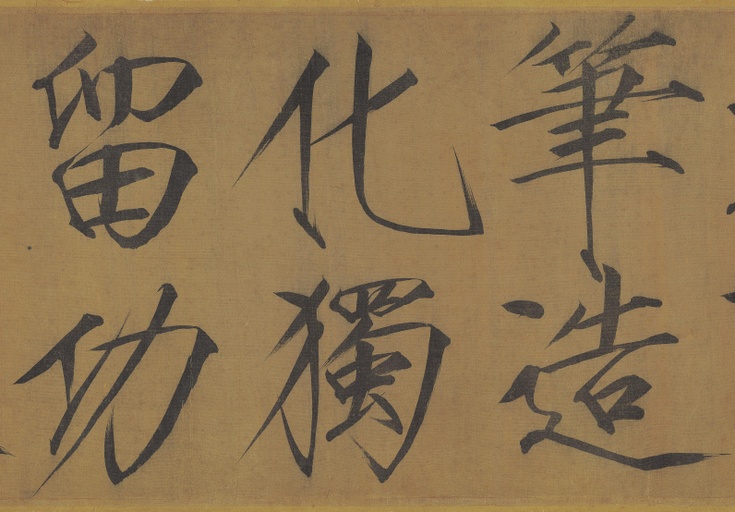 筆造
化獨
留功